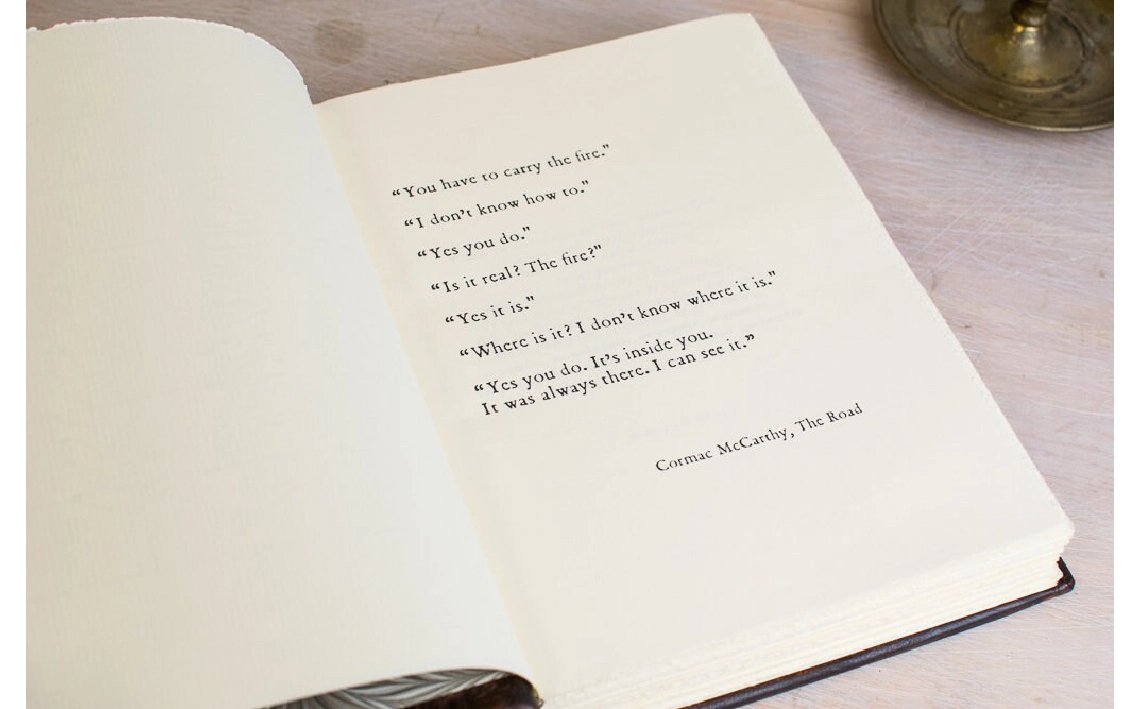 “You have to carry the fire."
“I don't know how to."
“Yes you do."
“Is it real? The fire?"
“Yes it is."
“Where is it? I don't know where it is."
“Yes you do. It's inside you.
It was always there. I can see it.”
Cormac McCarthy, The Road